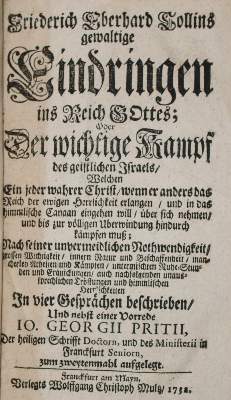 Friederich Eberhard Collins
gewaltige
Eindringen
ins Reich GOttes;
Oder
Der wichtige Kampf
des geistlichen Israels/
Welchen
Ein jeder wahrer Christ/ wenn er anders das
Reich der ewigen Herrlichkeit erlangen / und in das
himmlische Canaan eingehen will / über sich nehmen/
und bis zur völligen Uberwindung hindurch
kämpfen muß;
Nach seiner unvermeidlichen Nothwendigkeit/
grossen Wichtigkeit / innern Natur und Beschaffenheit / man-
cherley Arbeiten und Kämpfen / untermischten Ruhe-Stun-
den und Erquickungen / auch nachfolgenden unaus-
sprechlichen Tröstungen und himmlischen
Herrlichkeiten
In vier Gesprächen beschrieben/
Und nebst einer Vorrede
IO. GEORGII PRITII,
Der heiligen Schrifft Doctorn, und des Ministerii in
Franckfurt Senioris,
zum zweytenmahl aufgelegt.
Franckfurt am Mayn,
Verlegts Wolffgang Christoph Multz / 1732.